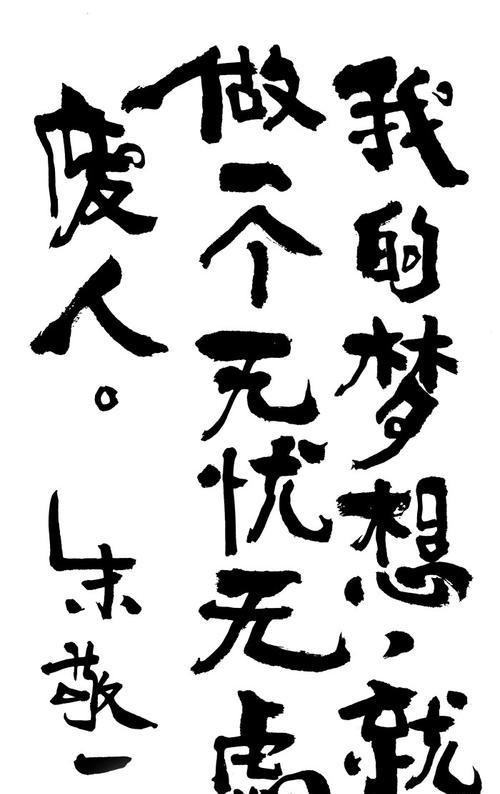 我的梦想，就
做一个无忧无虑
废人。
朱敬一